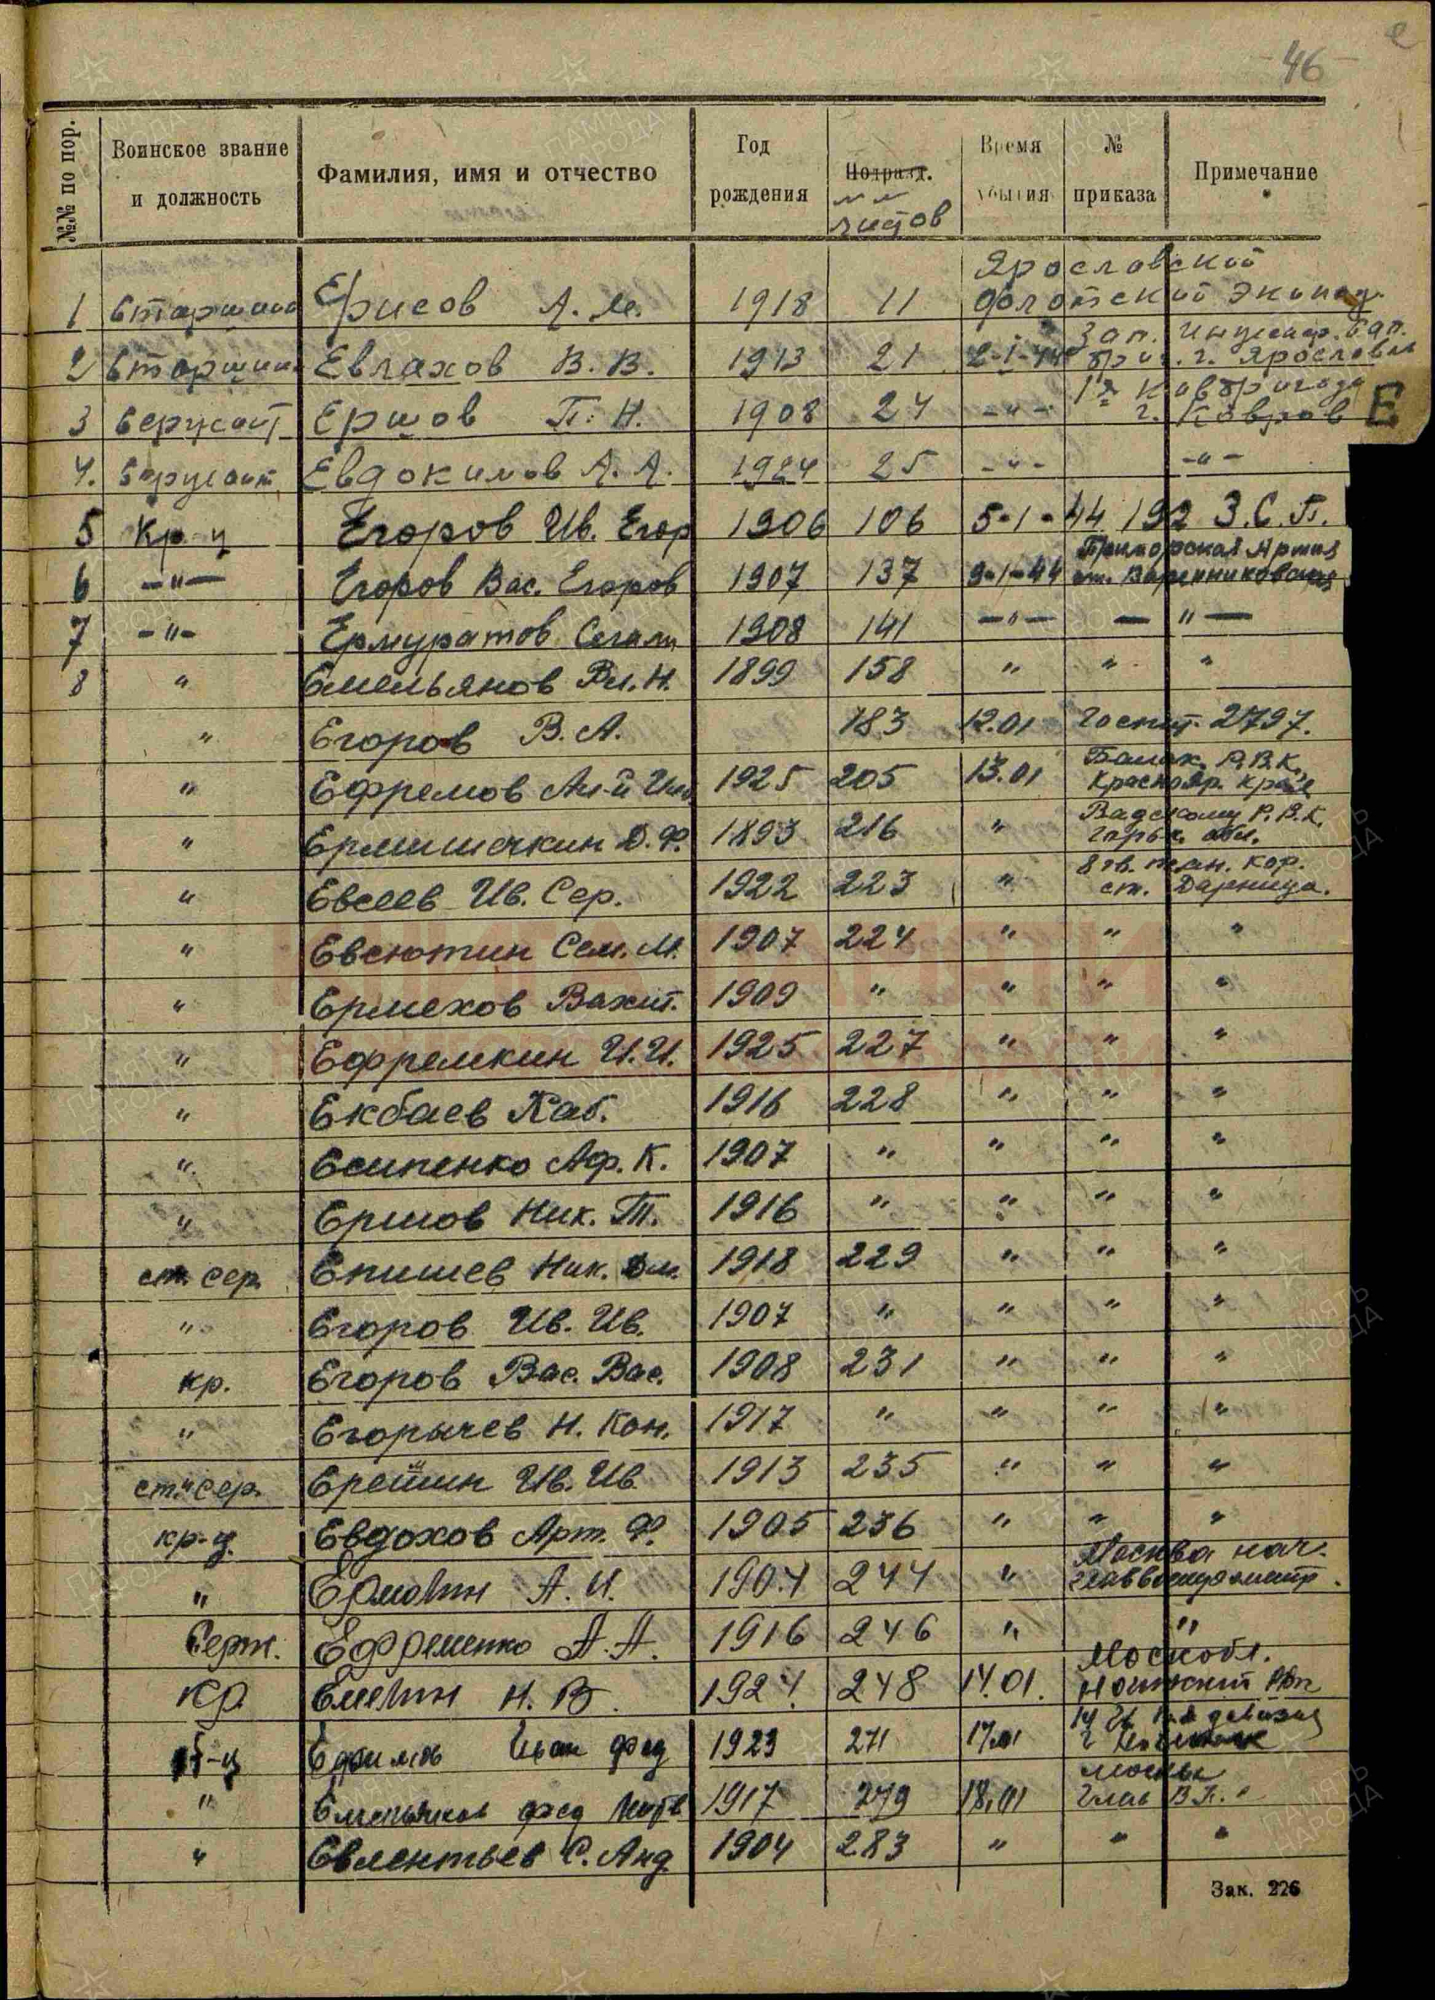 46
е
№№ по пор. Воинское звание и должность Фамилия, имя и отчество Год рождения Подразд. №№ листов Время убытия № приказа Примечание
Ярославский
1 Старшина Ерисов А. М. 1918 11 флотский экипаж
Зап. инженер. бат.
2 Старшина Евлахов В. В. 1913 21 2-1-44 г. Ярославль
1я Кавбригада
3 Сержант Ершов П. Н. 1908 24 -"- г. Ковров Е
4. Сержант Евдокимов А. А. 1924 25 -"- -"-
5 Кр-ц Егоров Ив. Егор 1906 106 5-1-44 192 З.С.П.
Приморская Армия
6 -"- Егоров Вас. Егоров 1907 137 9-1-44 ст. Варениковская
7 -"- Ермуратов 1908 141 -"- -"-
8 " Емельянов Вл. Н. 1899 158 " " "
" Егоров В. А. 183 12.01 Госпит. 2797.
Балах. Р.В.К.
" Ефремов Ал-й 1925 205 13.01 Краснояр. края
Вадскому Р.В.К.
" Ермишечкин Д. Ф. 1893 216 " Горьк. обл.
8 гв. танк. кор.
" Евсеев Ив. Сер. 1922 223 " ст. Дарница.
" Евсютин Сем. М. 1907 224 " " "
" Ермехов Вахит. 1909 " " " "
" Ефремкин И. И. 1925 227 " " "
" Екбаев Каб. 1916 228 " " "
" Есипенко Аф. К. 1907 " " " "
" Ершов Ник. Т. 1916 " " " "
ст. сер. Епишев Ник. Дм. 1918 229 " " "
" Егоров Ив. Ив. 1907 " " " "
кр. Егоров Вас. Вас. 1908 231 " " "
" Егорычев Н. Кон. 1917 " " " "
ст. сер. Ерешин Ив. Ив. 1913 235 " " "
кр-ц. Евдохов Арт. Ф. 1905 236 " " "
Москва нач.
" Ермотин А. И. 1904 244 "
Серж. Ефременко А. А. 1916 246 " "
Москобл.
кр Еметин Н. В. 1924. 248 14.01.
14 Гв.
Ефимов Иван Фед 1923 271 17.01 г.
Москва
" Емельянов Фед 1917 279 18.01 Глав В.П.
" Евлентьев С. Анд. 1904 283 " " "
Зак. 226
ПАМЯТЬ НАРОДА